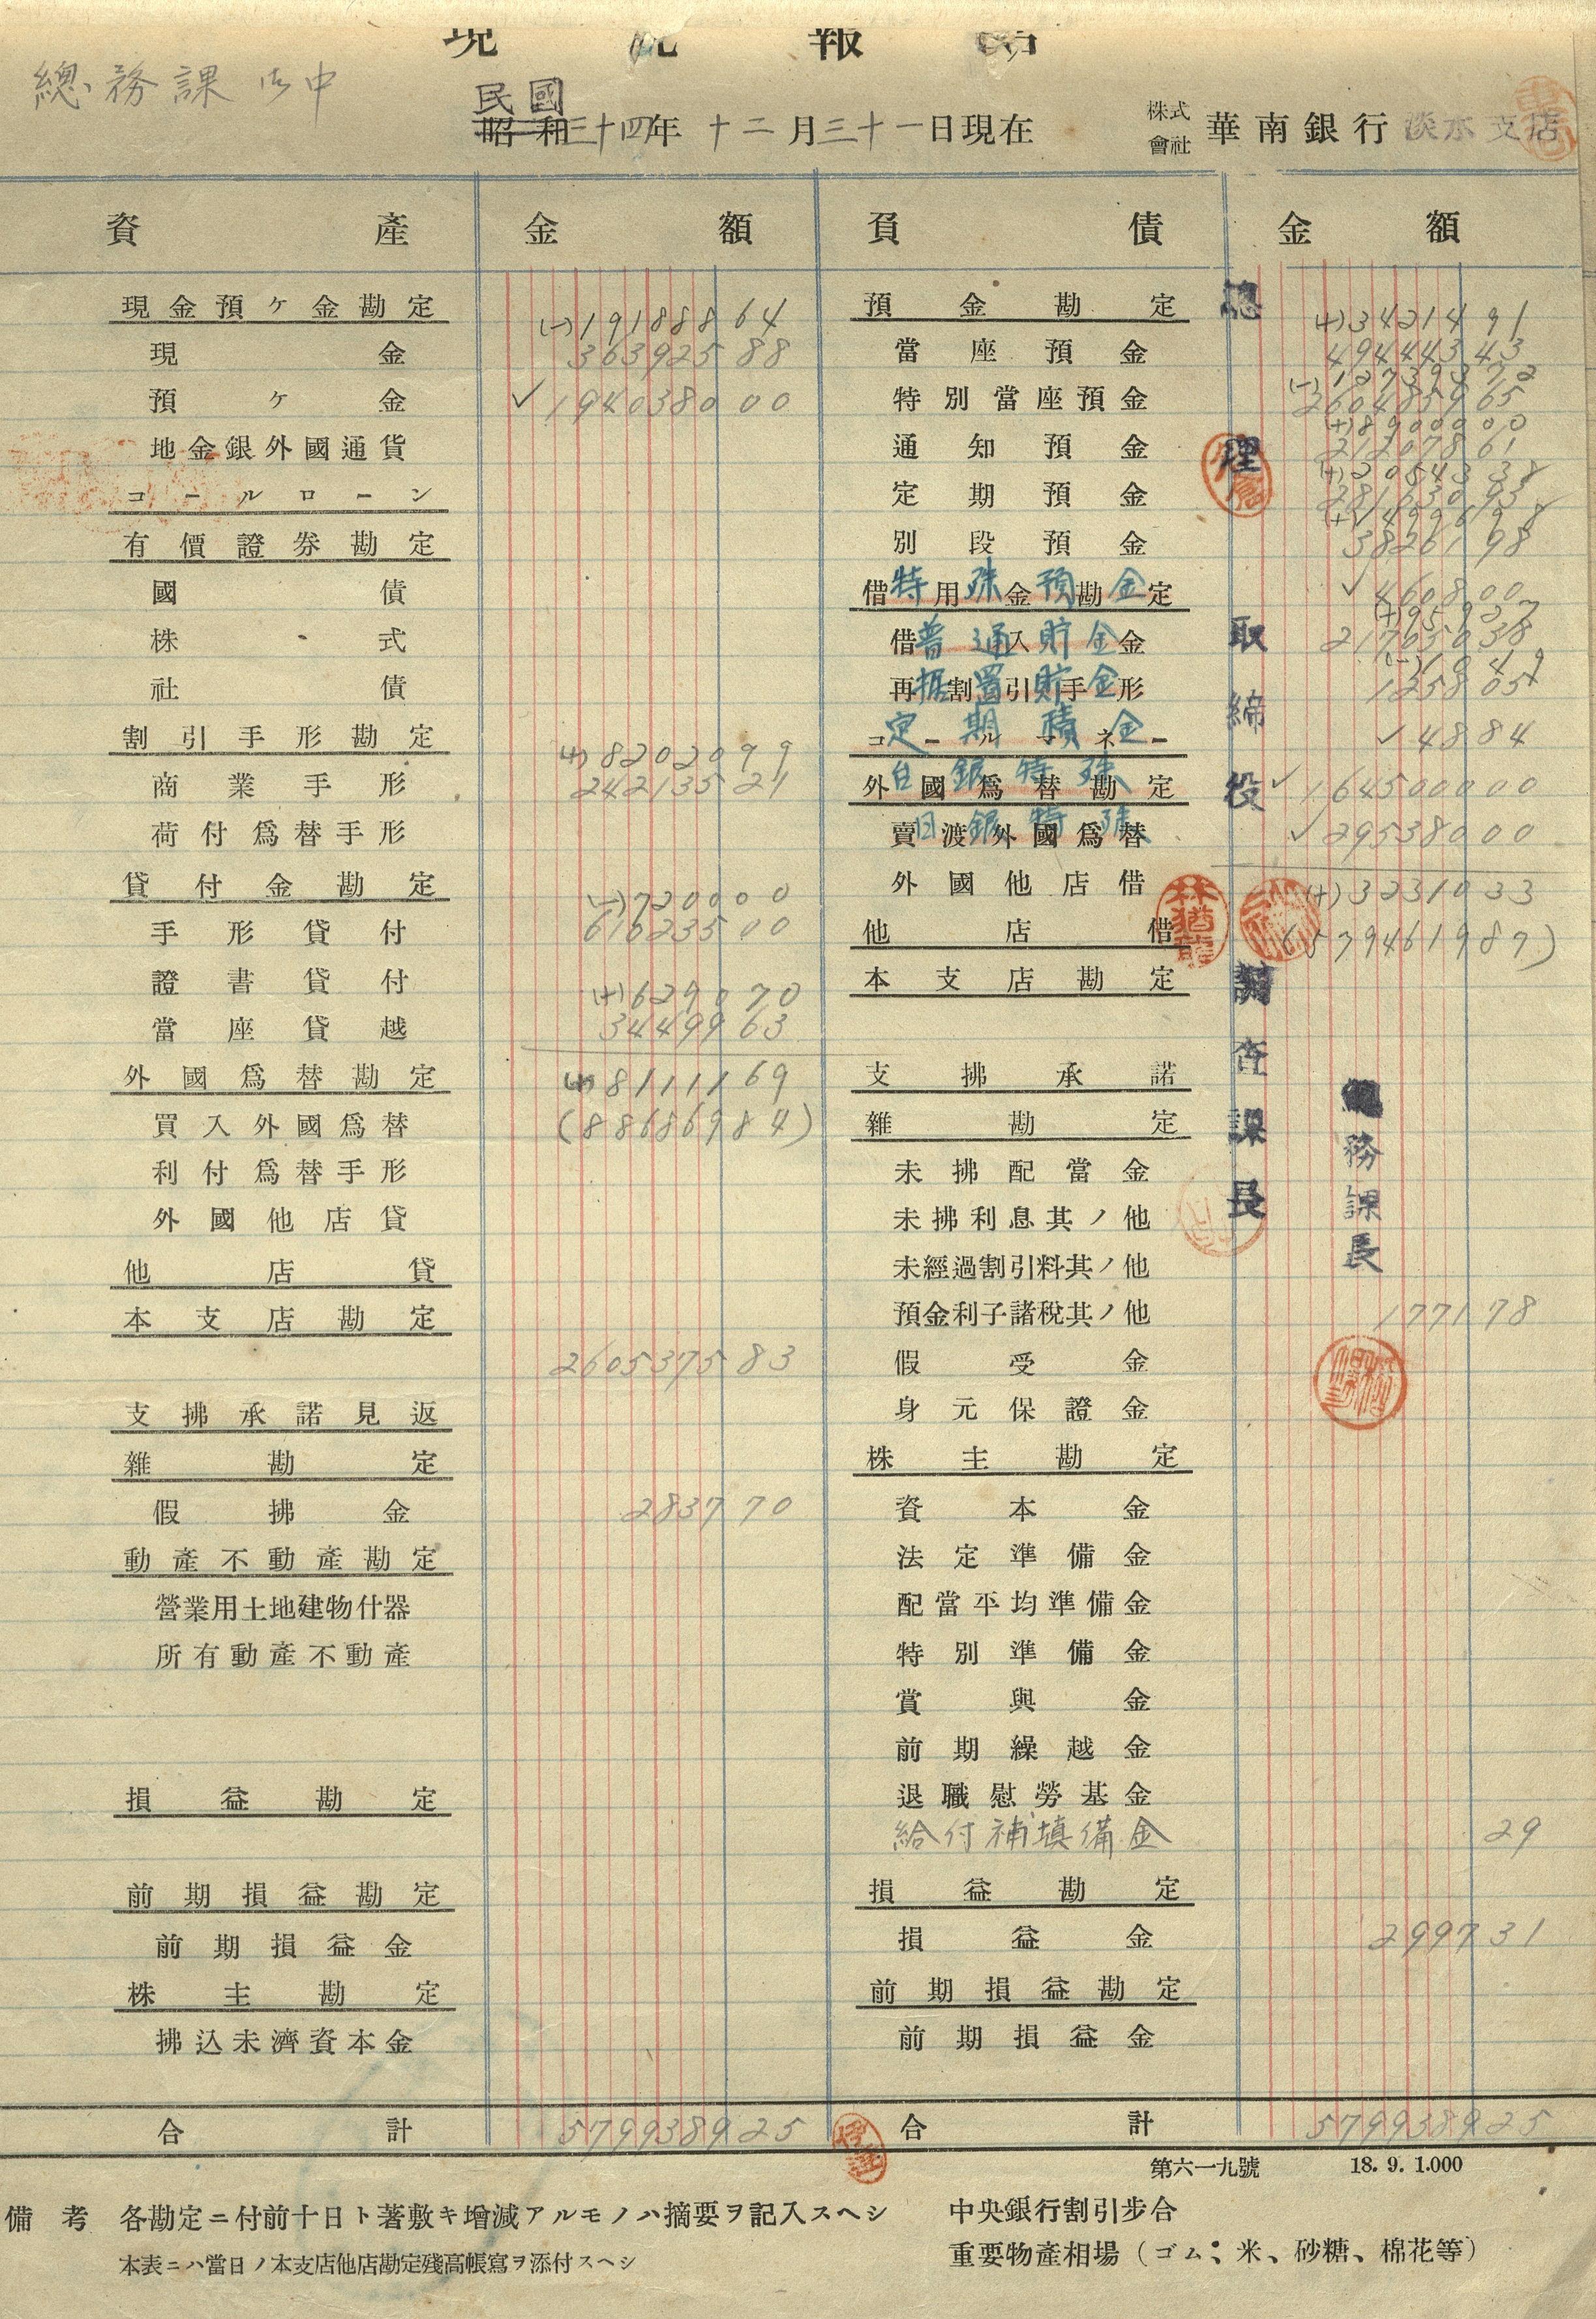 現 況 報 告
總務課 御中
民國
昭和三十四年 十二月三十一日現在
株式會社 華南銀行 淡水支店
資產 金額 負債 金額
現金預ケ金勘定 (-)191888 64
現金 363925 88
預ケ金 ✓1940380 00
地金銀外國通貨
コールローン
有價證券勘定
國債
株式
社債
割引手形勘定 (+)82020 99
商業手形 242135 21
荷付爲替手形
貸付金勘定 (-)7200 00
手形貸付 616235 00
證書貸付 (+)6290 70
當座貸越 34499 63
外國爲替勘定 (+)81111 69
買入外國爲替 (886869 84)
利付爲替手形
外國他店貸
他店貸
本支店勘定
2605375 83
支拂承諾見返
雜勘定
假拂金 2837 70
動產不動產勘定
營業用土地建物什器
所有動產不動產
損益勘定
前期損益勘定
前期損益金
株主勘定
拂込未濟資本金
合計 5799389 25
預金勘定 (+)34214 91
當座預金 494443 43
(-)127393 72
特別當座預金 2604859 65
(+)89000 00
通知預金 212078 61
(+)20543 38
定期預金 281630 93
別段預金 38261 98
借用金勘定
特殊預金 ✓4608 00
(+)959 37
借入金
普通貯金 217650 38
再割引手形
据置貯金 1258 05
コールマネー
定期積金 ✓148 84
外國爲替勘定
台銀特殊 ✓1645000 00
賣渡外國爲替
日銀特殊 ✓295380 00
外國他店借 (+)32310 33
他店借 (5794619 87)
本支店勘定
支拂承諾
雜勘定
未拂配當金
未拂利息其ノ他
未經過割引料其ノ他
預金利子諸稅其ノ他 1771 78
假受金
身元保證金
株主勘定
資本金
法定準備金
配當平均準備金
特別準備金
賞與金
前期繰越金
退職慰勞基金
給付補填備金 29
損益勘定
損益金 2997 31
前期損益勘定
前期損益金
合計 5799389 25
總理
取締役
調查課長
總務課長
林猶龍
第六一九號 18. 9. 1.000
備考 各勘定ニ付前十日ト著敷キ增減アルモノハ摘要ヲ記入スヘシ
本表ニハ當日ノ本支店他店勘定殘高帳寫ヲ添付スヘシ
中央銀行割引步合
重要物產相場（ゴム、米、砂糖、棉花等）